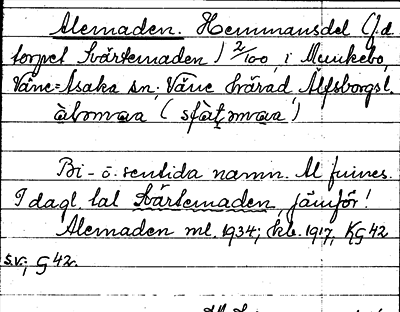 Alemaden. Hemmansdel (J.d.
torpet Svärtemaden) 2/100, i Munkebo,
Väne-Åsaka sn; Väne härad, Älfsborgs l.
àləmaa (sfàʈəmaa)
Bi- o. sentida namn. Al finnes.
I dagl. tal Svärtemaden, jämför!
Alemaden ml. 1934; kb. 1917, KG 42
s.v.; G 42.